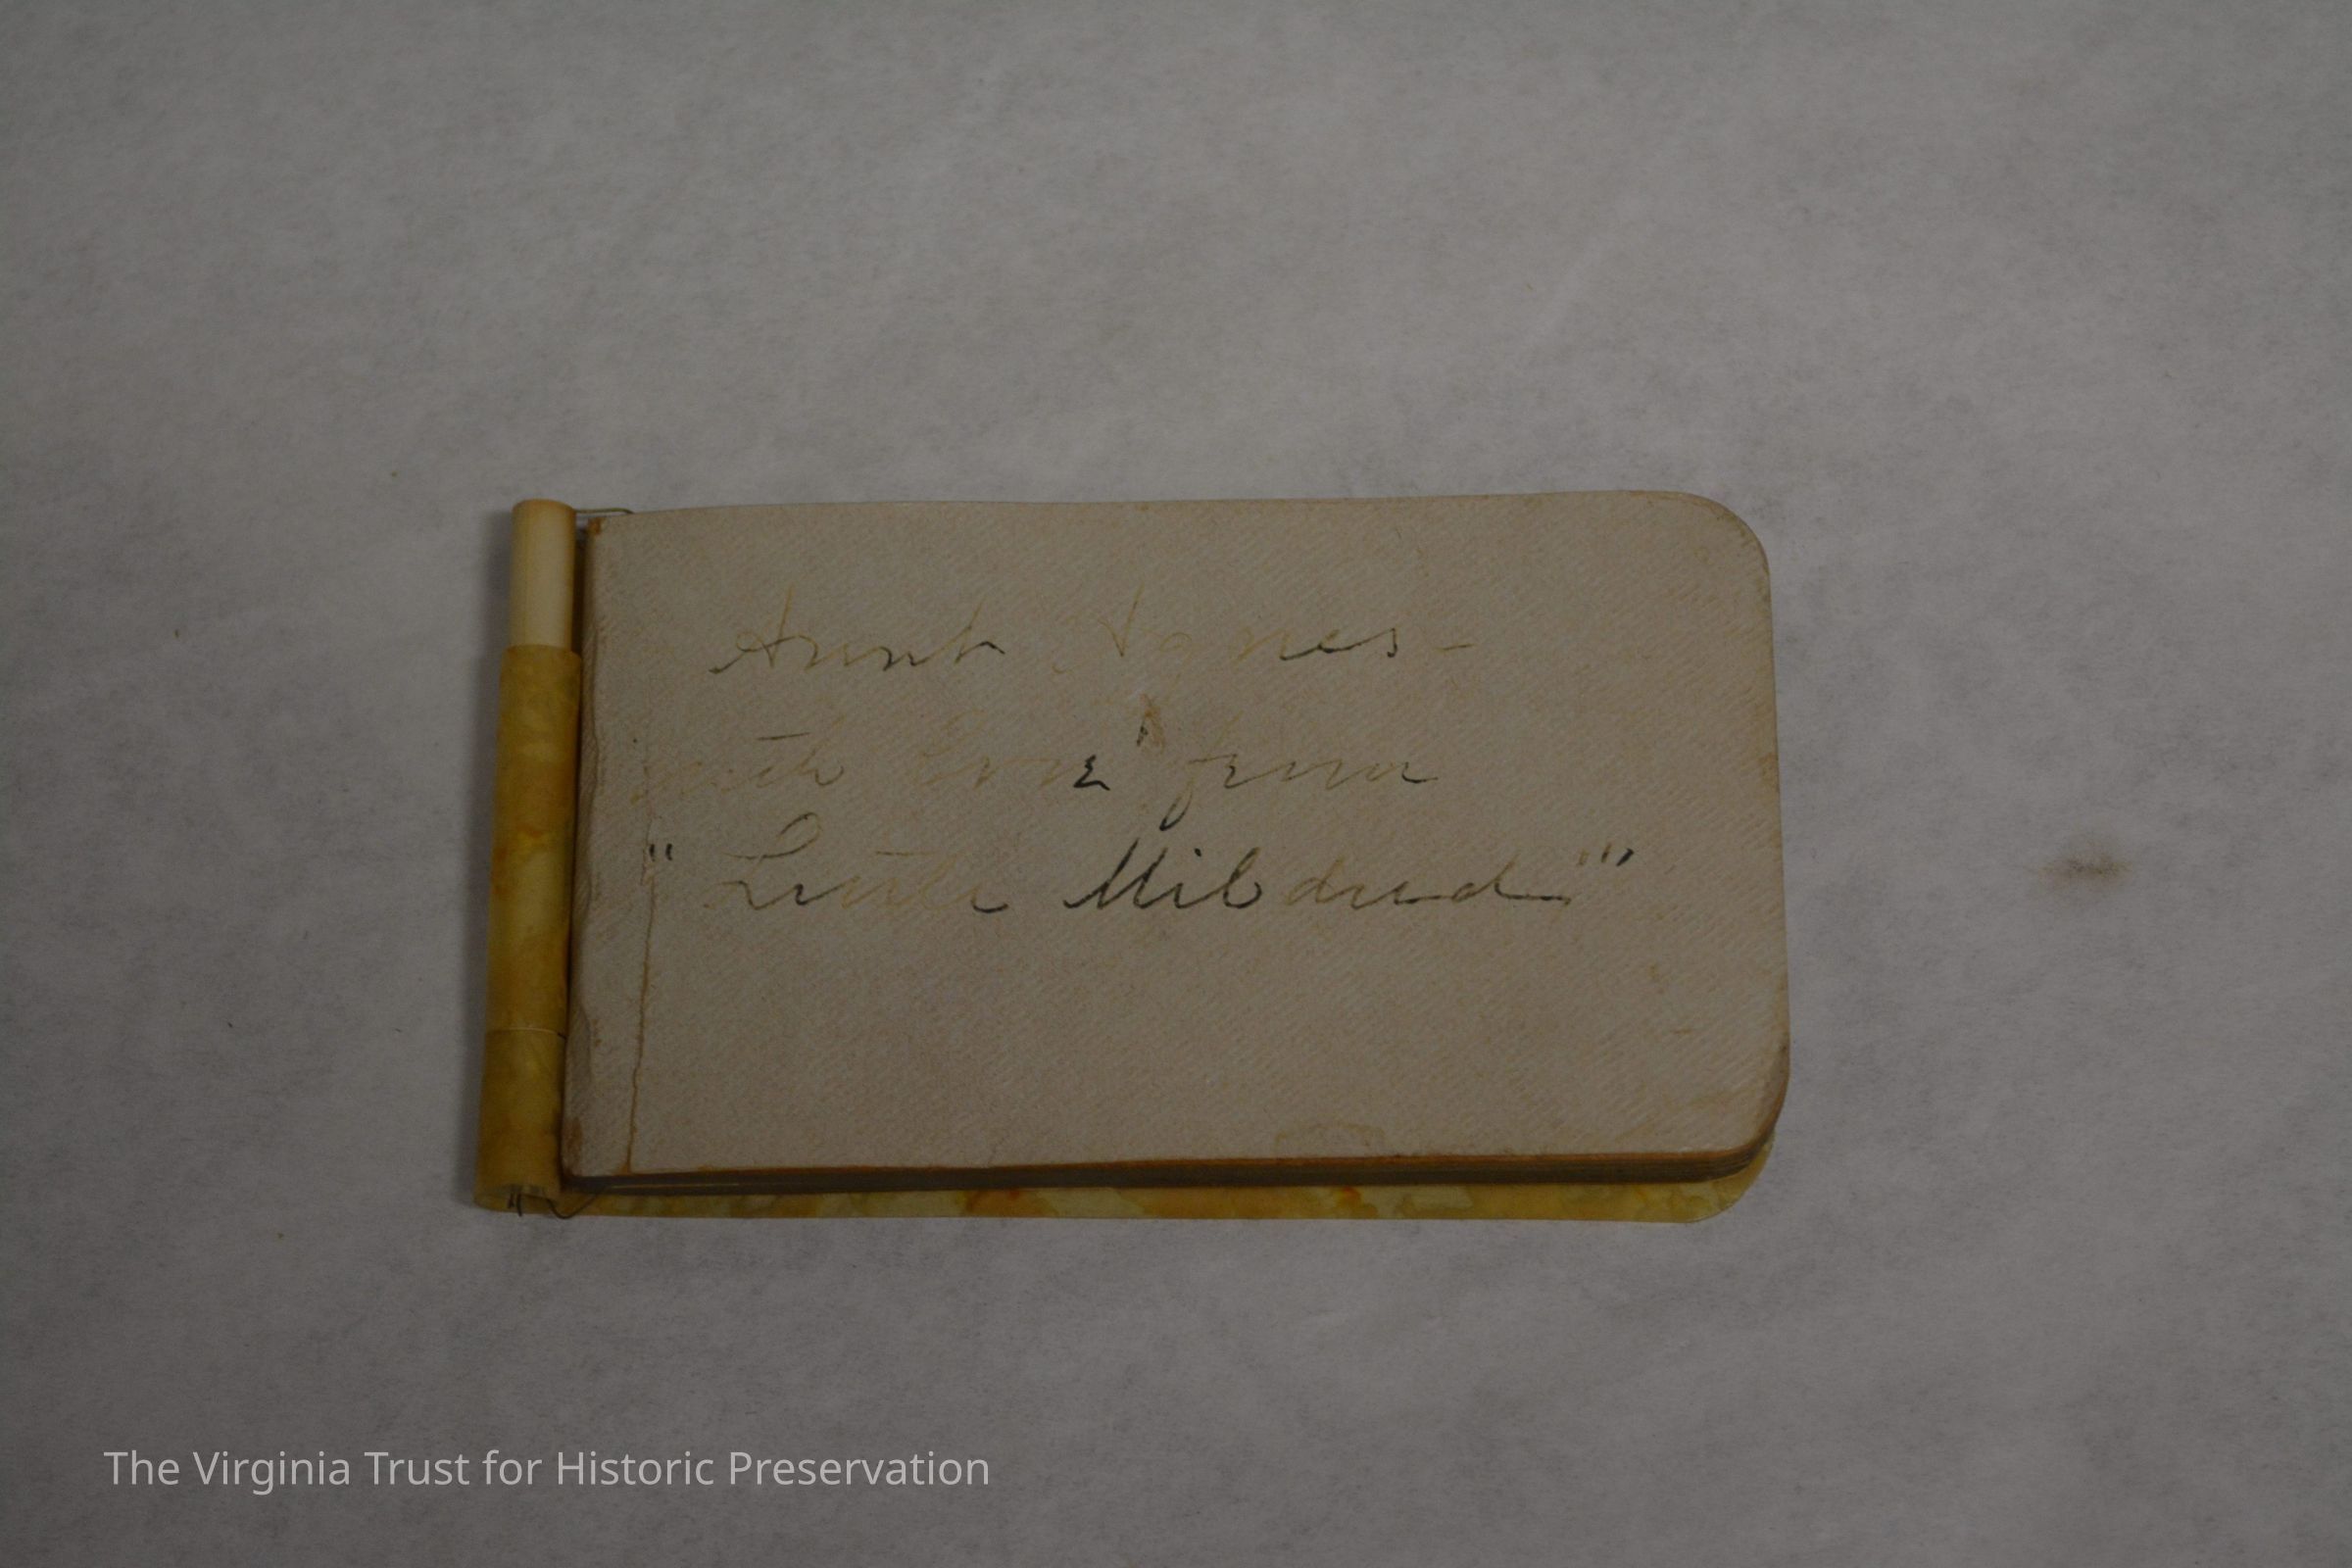 Aunt Agnes-
with love from
"Little Mildred"
The Virginia Trust for Historic Preservation